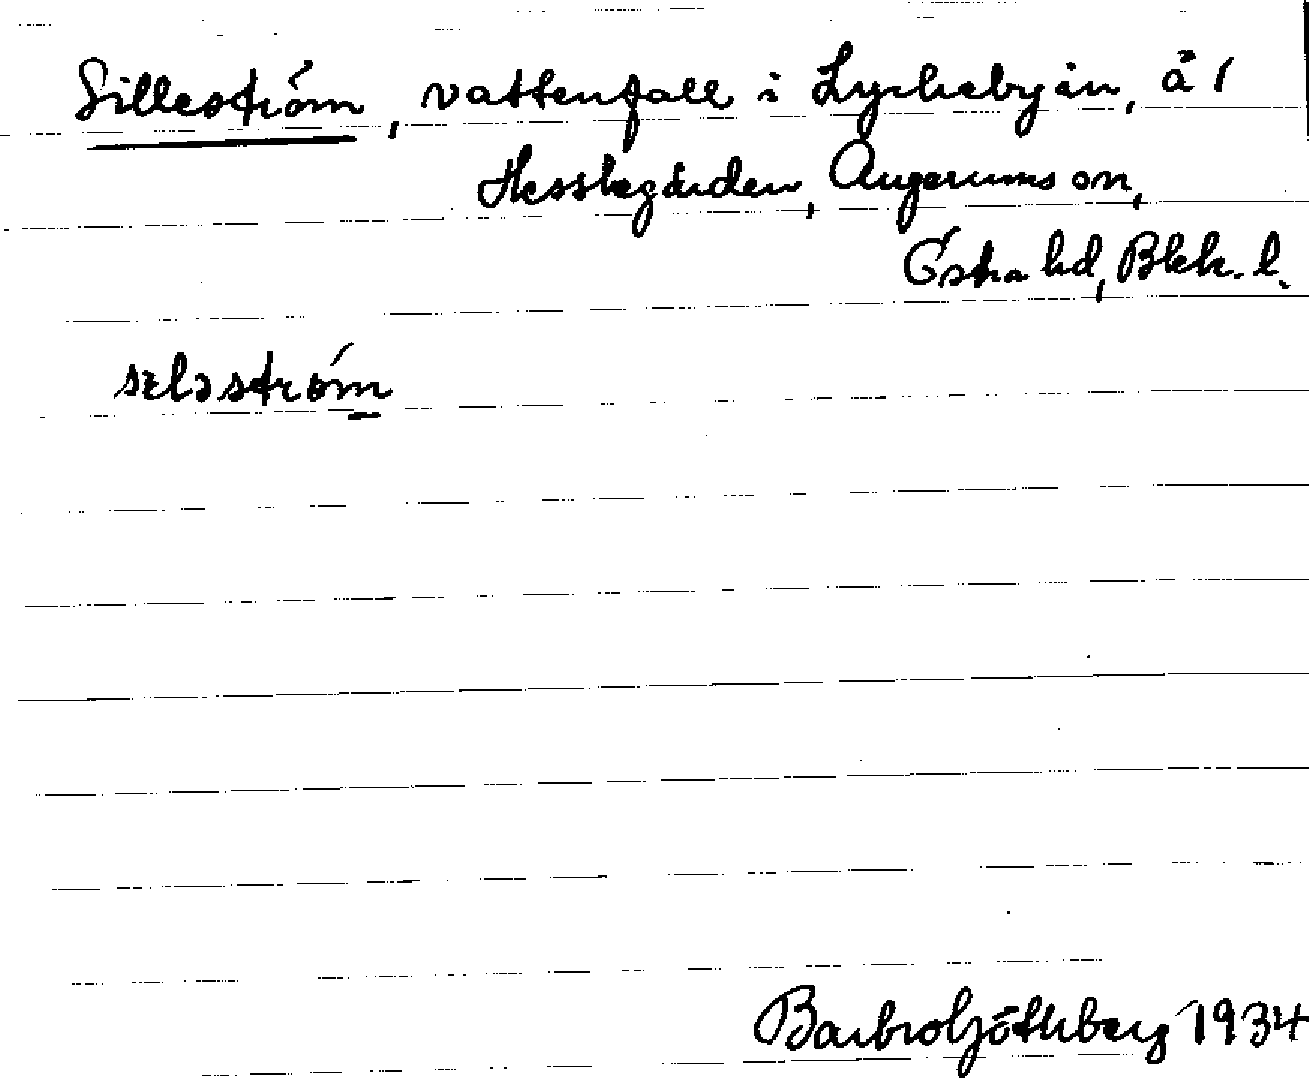 Silleström, vattenfall i Lyckebyån, å 1
Hesslegården, Augerums sn,
Östra hd, Blek. l.
seləström
Barbro Götlberg 1934